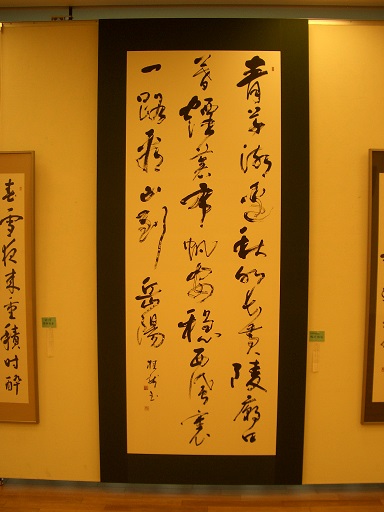 青草湖邊秋水長黄陵廟口
暮煙蒼布帆安穩西風裏
一路看山到岳陽
雪夜来重積时酔